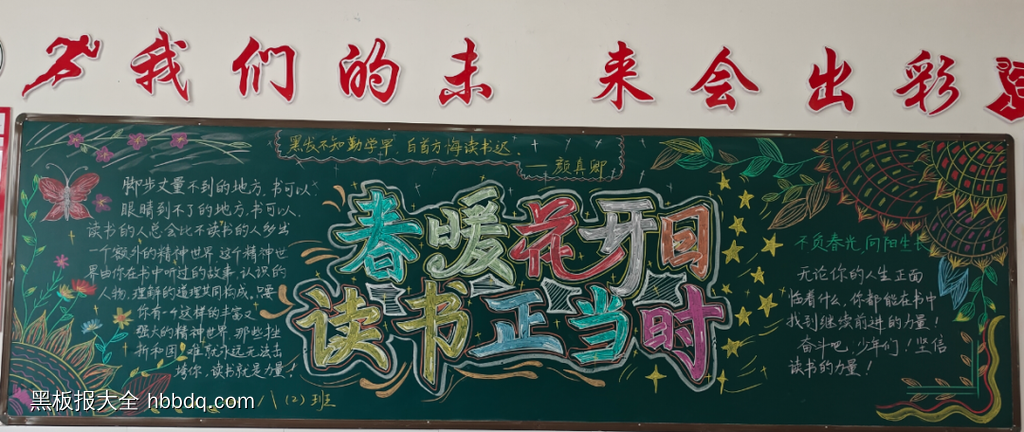 我们的未来会出彩
黑发不知勤学早，白首方悔读书迟
——颜真卿
脚步丈量不到的地方，书可以
眼睛到不了的地方，书可以，
读书的人总会比不读书的人多出
一个额外的精神世界 这个精神世
界由你在书中听过的故事，认识的
人物，理解的道理共同构成，只要
你有一个这样的丰富又
强大的精神世界，那些挫
折和困难就永远无法击
垮你，读书就是力量！
春暖花开日
读书正当时
不负春光，向阳生长
无论你的人生正面
临着什么，你都能在书中
找到继续前进的力量！
奋斗吧，少年们！坚信
读书的力量！
(2)班
黑板报大全 hbbdq.com